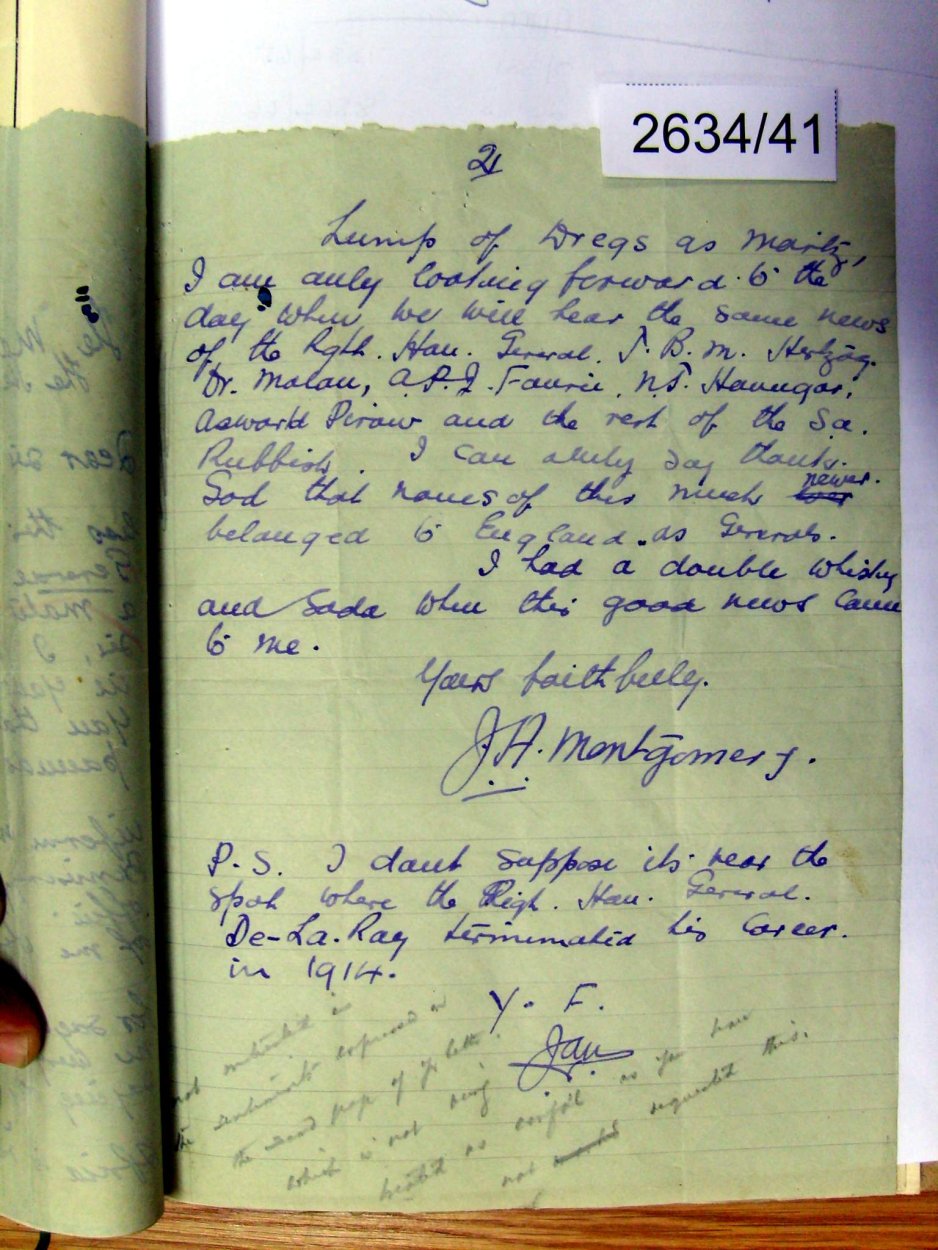 2634/41
2/
Lump of Dregs as Maritz,
I am anly looking forward to the
day when we will hear the same news
of the Rght. Hon. General. J. B. M. Hertzog.
Dr. Malan, A.P.J. Faurie, N.J. Havngar,
Asworld Pirow and the rest of the S.a.
Rubbish. I can anly say thank.
God that names of this much never.
belanged to England. as Generals.
I had a double whisky
and Soda when this good news came
to me.
Yours faithfully.
J.A. Montgomery.
P.S. I dant suppose its near the
spot where the Righ. Hon. General.
De-La-Ray terminated his Career.
in 1914.
Y. F.
Jam
not in
the sentiments expressed in
the second page of yr letter.
which is not being
treated as as you have
not requested this.